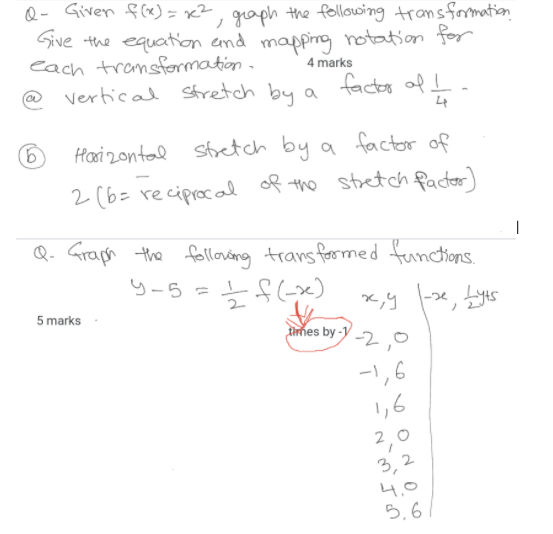 Q- Given f(x) = x², graph the following transformation.
Give the equation and mapping notation for
each transformation.
4 marks
ⓐ vertical stretch by a factor of 1/4.
ⓑ Horizontal stretch by a factor of
2 (b = reciprocal of the stretch factor)
Q. Graph the following transformed functions.
y-5 = 1/2 f(-x)
x, y | -x, 1/2y+5
5 marks
times by -1
-2, 0
-1, 6
1, 6
2, 0
3, 2
4.0
5.6